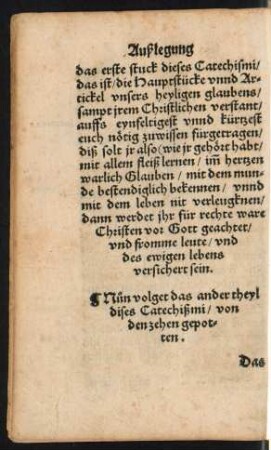 Außlegung
das erste stuck dieses Catechismi/
das ist/die Hauptstücke vnnd Ar-
tickel vnsers heyligen glaubens/
sampt jrem Christlichen verstant/
auffs eynfeltigest vnnd kürtzest
euch nötig zuwissen fürgetragen/
diß solt jr also (wie jr gehört habt/
mit allem fleiß lernen/ im̄ hertzen
warlich Glauben/ mit dem mun-
de bestendiglich bekennen/ vnnd
mit dem leben nit verleugknen/
dann werdet jhr für rechte ware
Christen vor Gott geachtet/
vnd fromme leute/ vnd
des ewigen lebens
versichert sein.
¶ Nůn volget das ander theyl
dises Catechißmi/ von
den zehen gepot-
ten.
Das